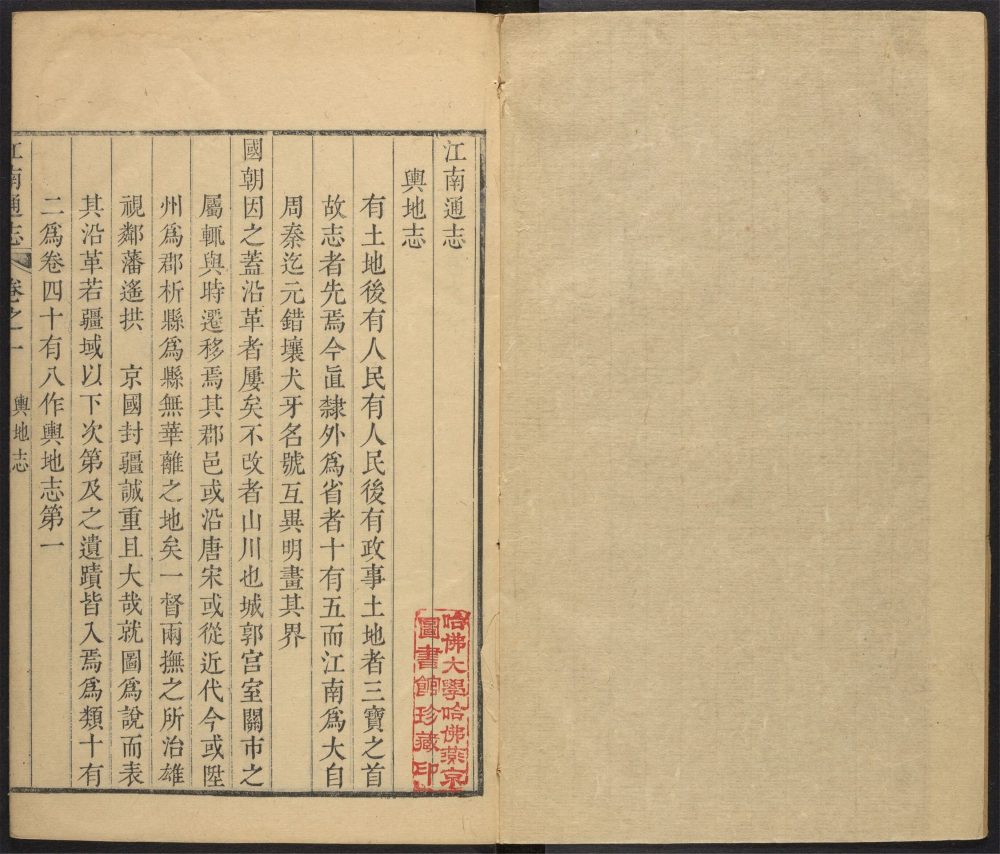 江南通志
輿地志
有土地後有人民有人民後有政事土地者三寶之首
故志者先焉今直隸外爲省者十有五而江南爲大自
周秦迄元錯壤犬牙名號互異明畫其界
國朝因之蓋沿革者屢矣不改者山川也城郭宫室關市之
屬輒與時遷移焉其郡邑或沿唐宋或從近代今或陞
州爲郡析縣爲縣無華離之地矣一督兩撫之所治雄
視鄰藩遙拱　京國封疆誠重且大哉就圖爲說而表
其沿革若疆域以下次第及之遺蹟皆入焉爲類十有
二爲卷四十有八作輿地志第一
江南通志 卷之一 輿地志
哈佛大學哈佛燕京
圖書館珍藏印